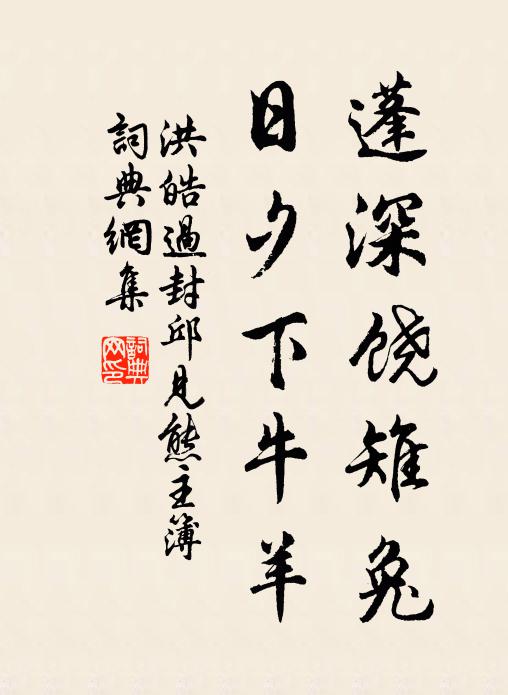 蓬深饶雉兔
日夕下牛羊
洪皓過封邱見熊主簿
詞典網集
詞典網印